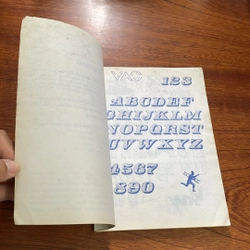 VAS
123
ABCDEF
GHIJKLM
NOPQRST
UVWXYZ
4567
890